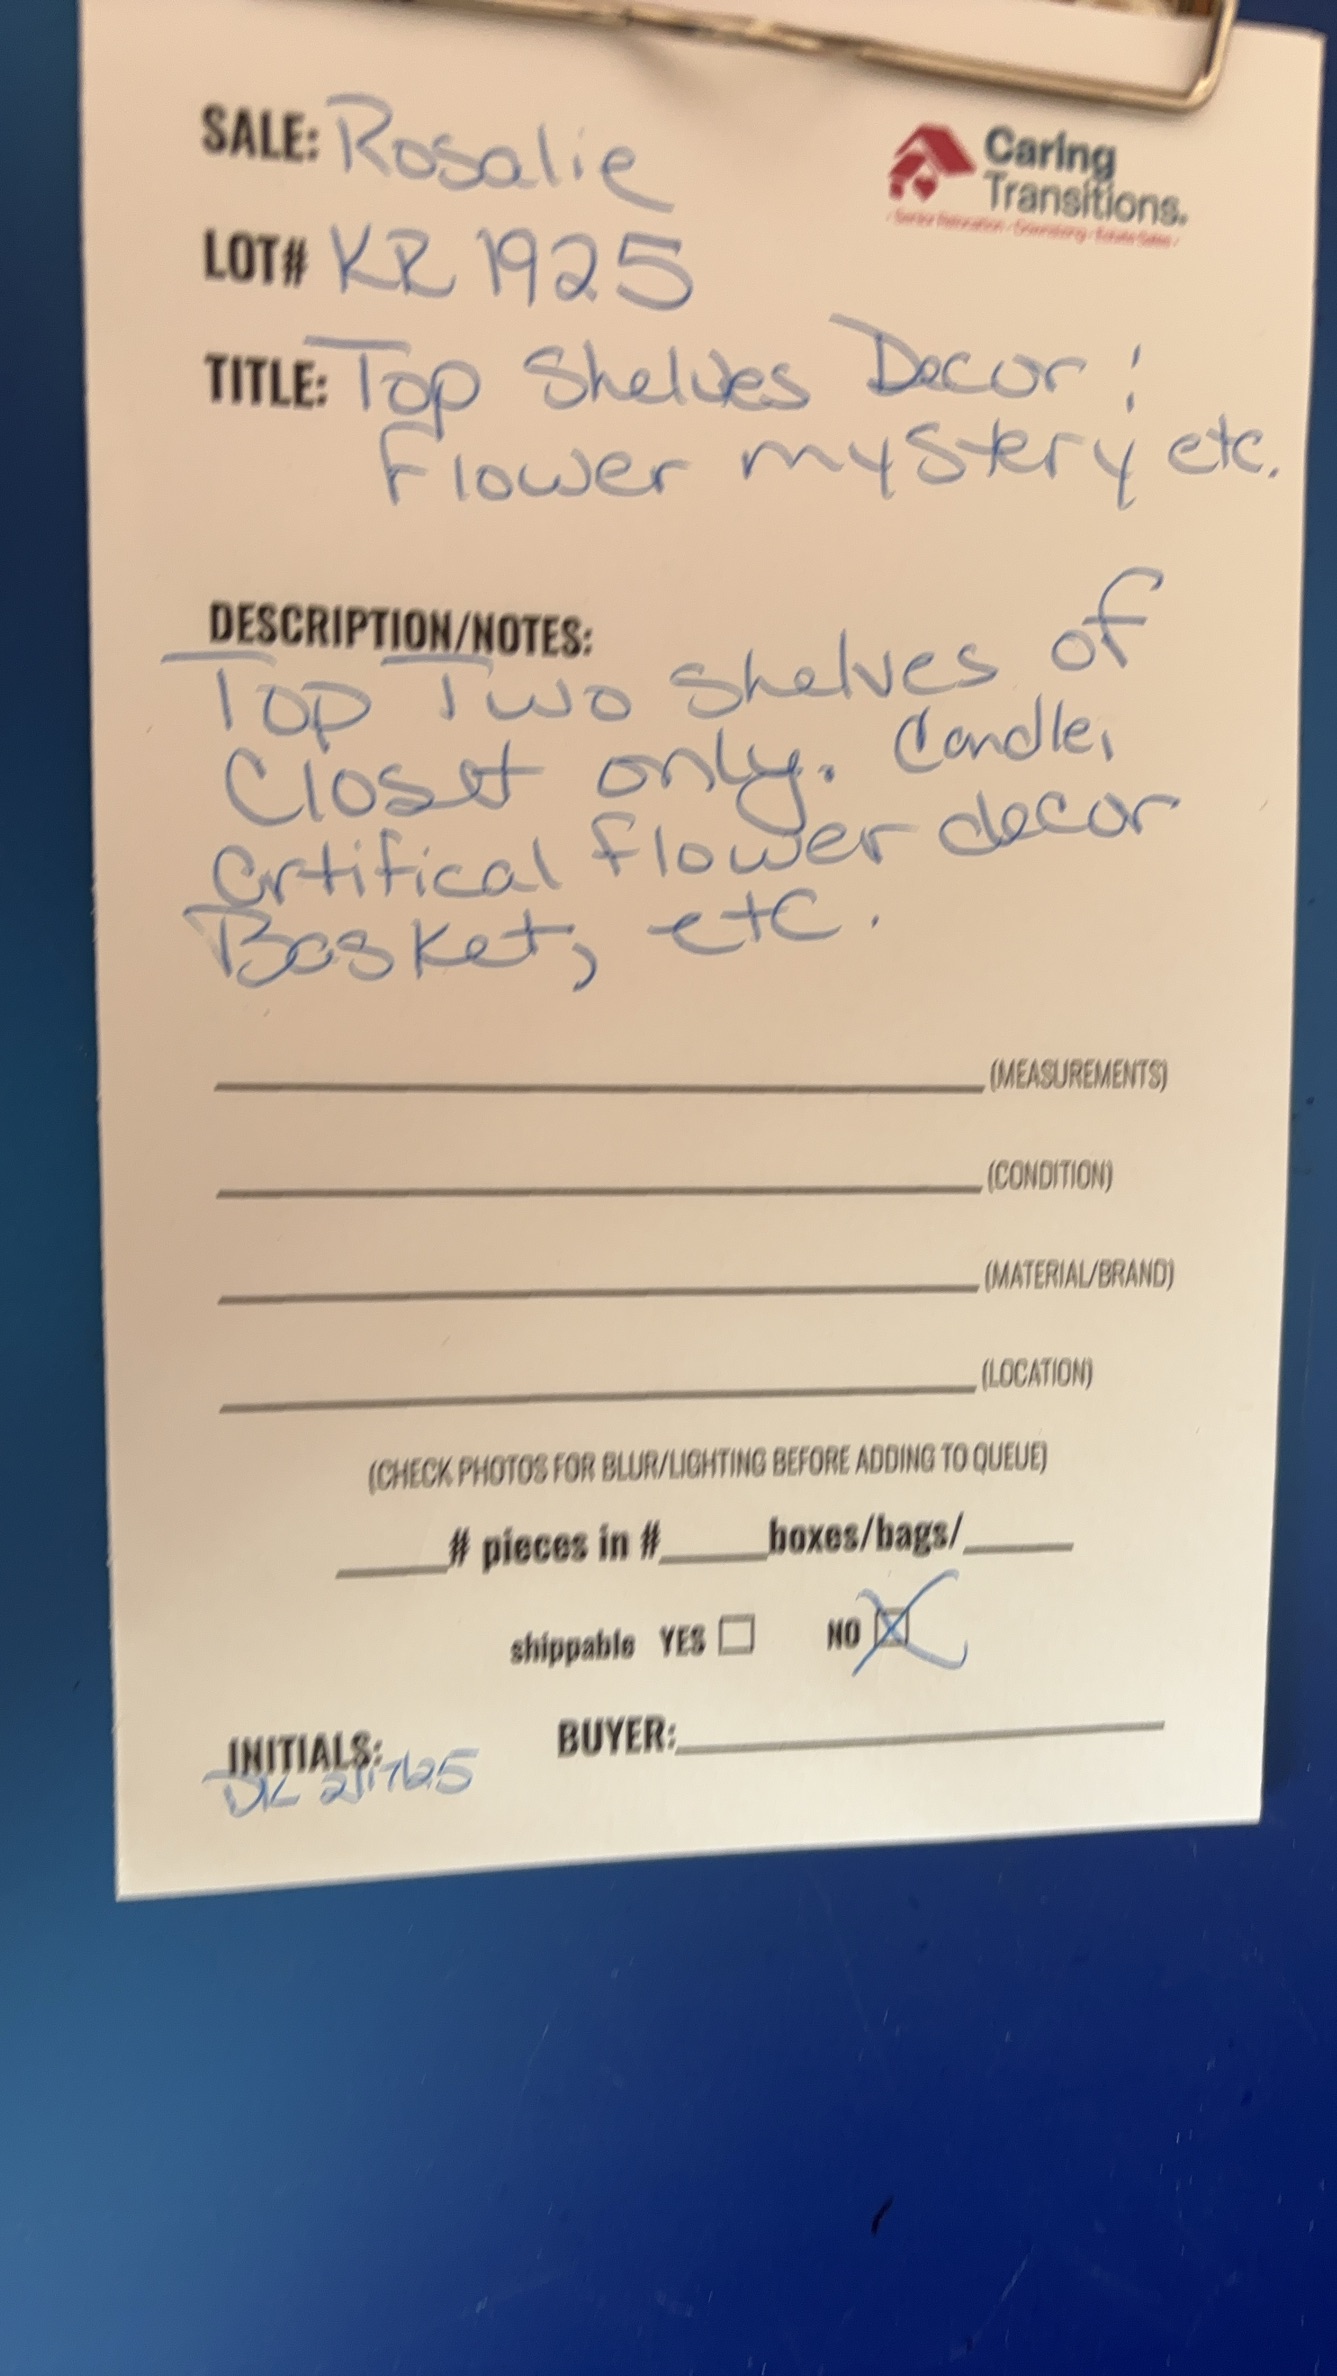 SALE: Rosalie
Caring
Transitions.
Senior Relocation · Downsizing · Estate Sales
LOT# KR 1925
TITLE: Top Shelves Decor:
Flower mystery etc.
DESCRIPTION/NOTES:
Top Two shelves of
Closet only. Candle,
artifical flower decor
Basket, etc.
(MEASUREMENTS)
(CONDITION)
(MATERIAL/BRAND)
(LOCATION)
(CHECK PHOTOS FOR BLUR/LIGHTING BEFORE ADDING TO QUEUE)
# pieces in # boxes/bags/
shippable YES NO
INITIALS: BUYER:
DK 2/17/25